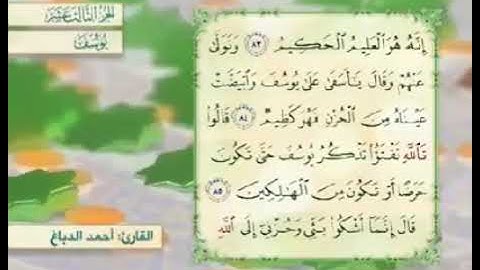 الجزء الثالث عشر
يوسف
إِنَّهُ هُوَ الْعَلِيمُ الْحَكِيمُ ٨٣ وَتَوَلَّىٰ
عَنْهُمْ وَقَالَ يَا أَسَفَىٰ عَلَىٰ يُوسُفَ وَابْيَضَّتْ
عَيْنَاهُ مِنَ الْحُزْنِ فَهُوَ كَظِيمٌ ٨٤ قَالُوا
تَاللَّهِ تَفْتَؤُا تَذْكُرُ يُوسُفَ حَتَّىٰ تَكُونَ
حَرَضًا أَوْ تَكُونَ مِنَ الْهَالِكِينَ ٨٥
قَالَ إِنَّمَا أَشْكُوا بَثِّي وَحُزْنِي إِلَى اللَّهِ
القارئ: أحمد الدباغ